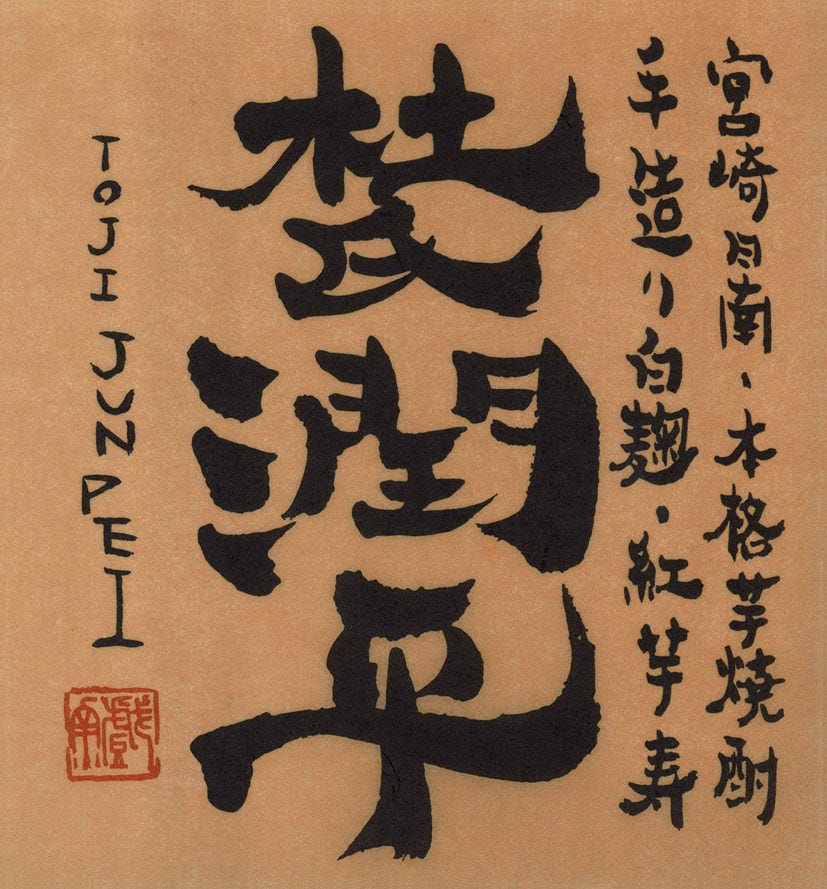 宮崎日南、本格芋焼酎
手造り、白麹・紅芋寿
杜氏潤平
TOJI JUNPEI